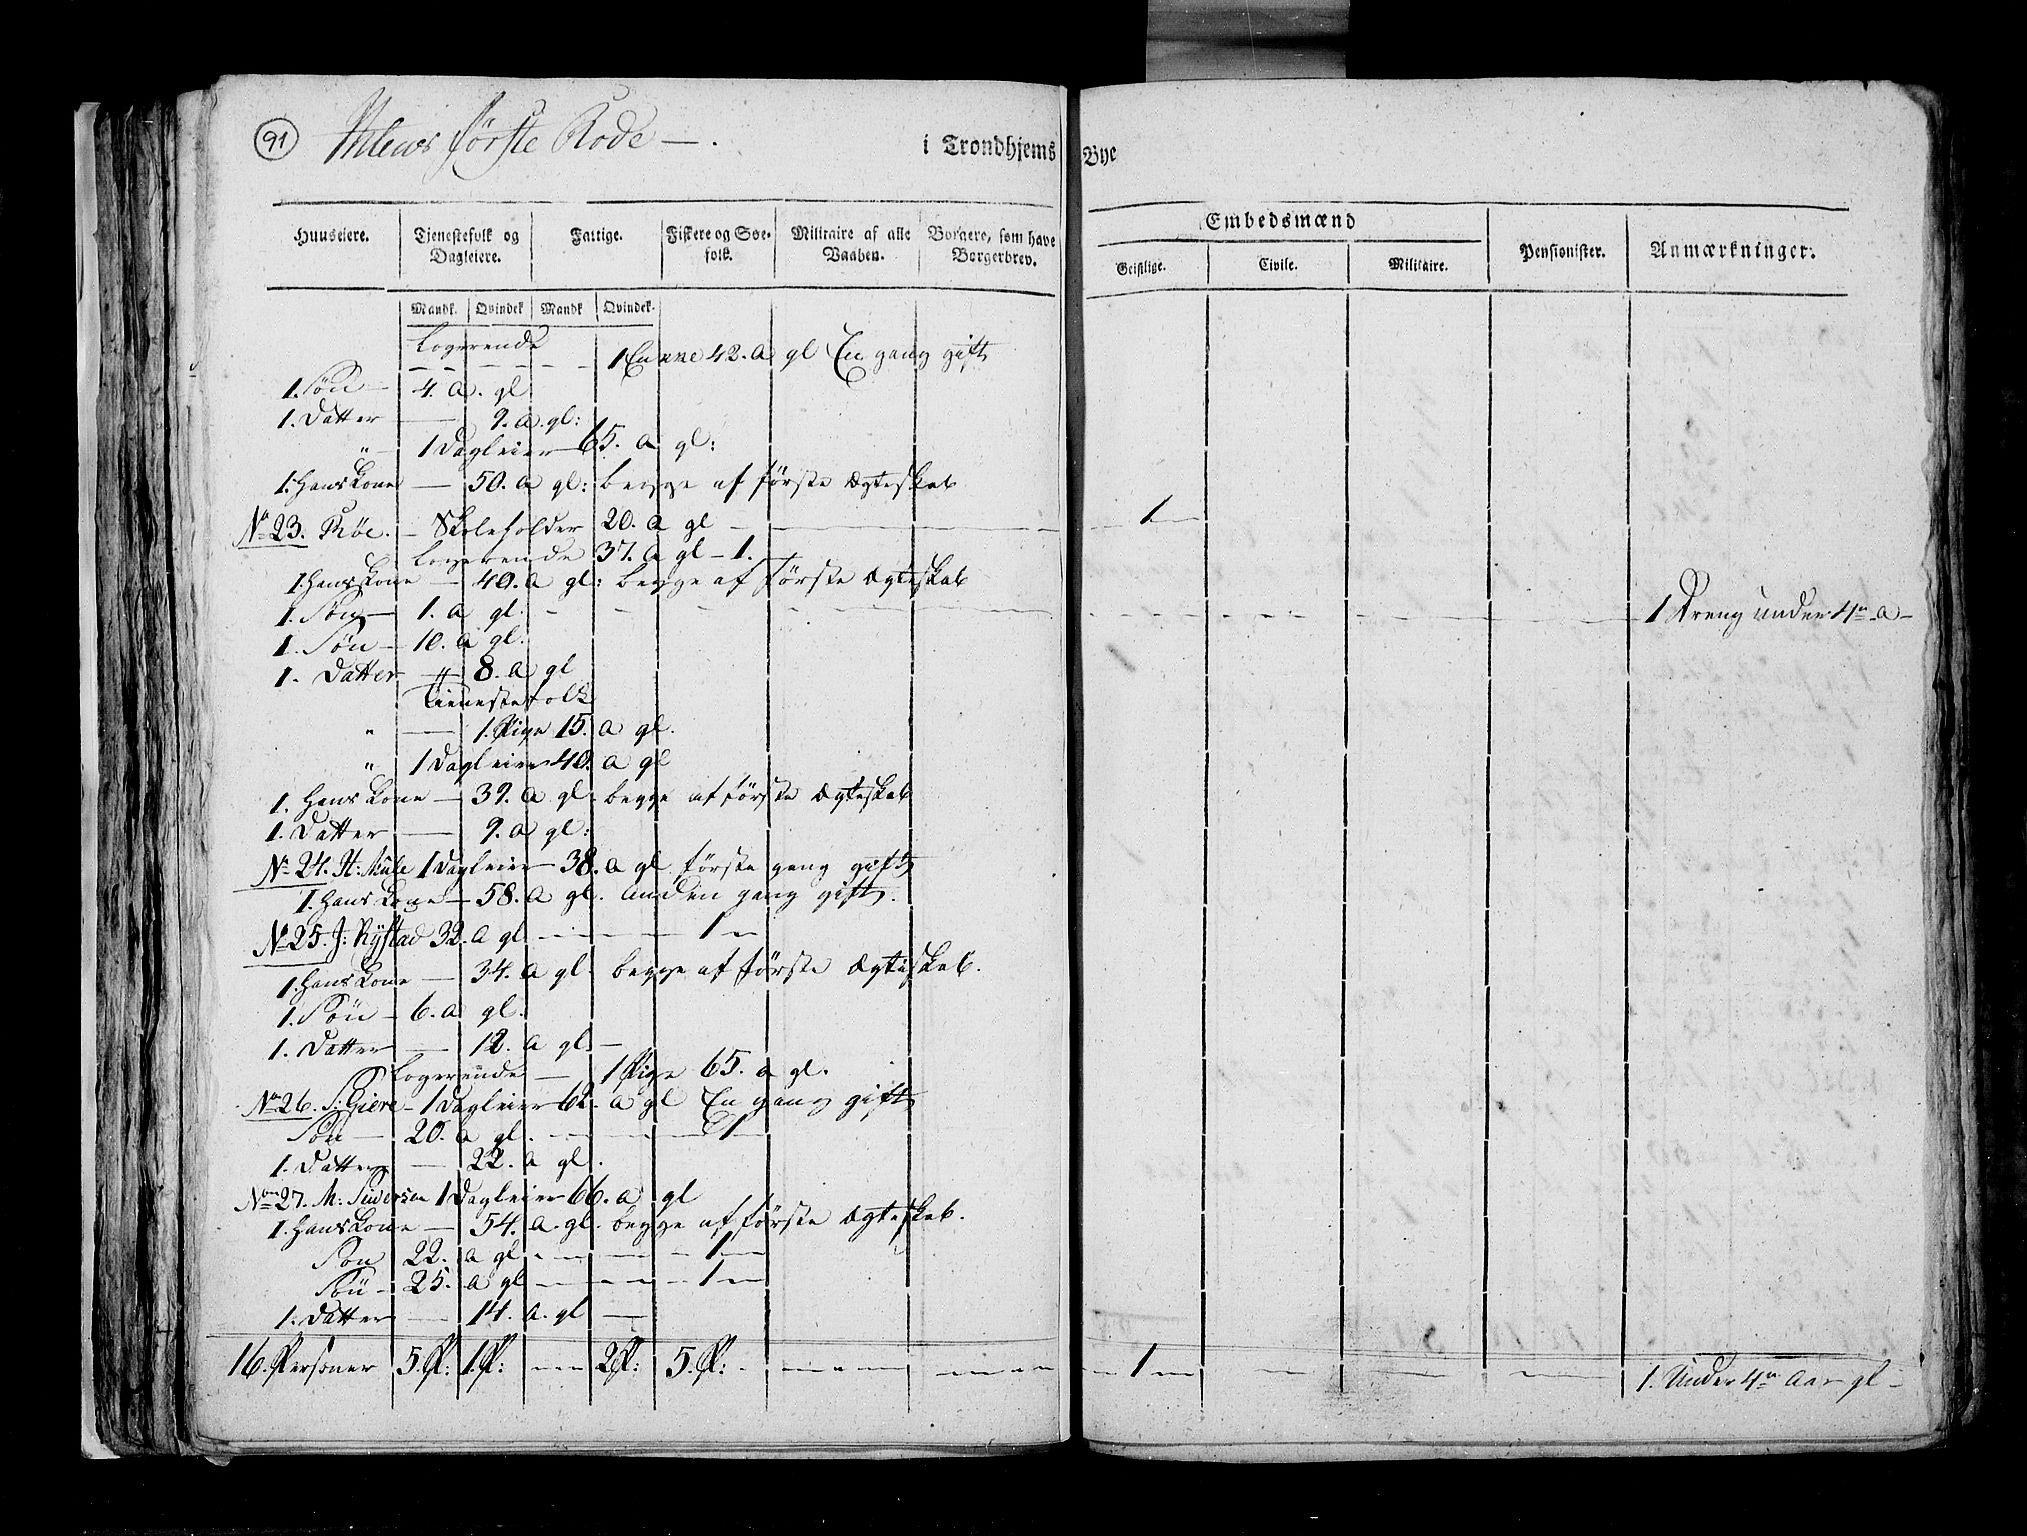 91 Ihlens første Rode — . i Trondhjems Bye
Huuseiere. Tjenestefolk og Dagleiere. Fattige. Fiskere og Søe-folk. Militaire af alle Vaaben. Borgere, som have Borgerbrev. Embedsmænd Pensionister. Anmærkninger.
Geistlige. Civile. Militaire.
Mandk. Qvindek Mandk Qvindek.
Logerende
— — — — — 1 Enke 42. a gl En gang gift
1. Søn — 4. a. gl
1. Datter — 9. a. gl:
" — 1 Dagleier 65. a gl:
1. Hans Kone — 50. a gl: begge af første Ægteskab
No 23. Røe. — Skoleholder 20. a gl — 1 —
Logerende 37. a gl — 1.
1. Hans Kone — 40. a gl: begge af første Ægteskab
1. Søn — 1. a gl. — — — 1 Dreng under 4re a —
1. Søn — 10. a gl.
1. Datter — " 8. a gl
Tienestefolk
" — 1. Pige 15. a gl.
" 1 Dagleier 40. a gl
1. Hans Kone — 39. a gl. begge af første Ægteskab
1. Datter — 9. a gl:
No 24. H: Mule 1 Dagleier 38. a gl første gang gift
1. Hans Kone — 58. a gl. anden gang gift.
No 25. J: Rÿstad 32. a gl — — — 1 —
1. Hans Kone — 34. a gl. begge af første Ægteskab.
1. Søn — 6. a gl.
1. Datter — 12. a gl —
Logerende — 1 Pige 65. a gl.
No 26. S: Giere — 1 Dagleier 62. a gl En gang gift
Søn — 20. a gl. — — — 1 —
1. Datter — 22. a gl.
No 27. M: Siversen 1 Dagleier 66. a gl
1. Hans Kone — 54. a. gl. begge af første Ægteskab.
Søn 22. a gl — — — 1 —
Søn — 25. a gl — — — 1 —
1. Datter — 14. a. gl —
16. Personer 5. P: 1 P: — — 2 P: 5. P: — — — 1 — — — — 1. Under 4re Aar gl —